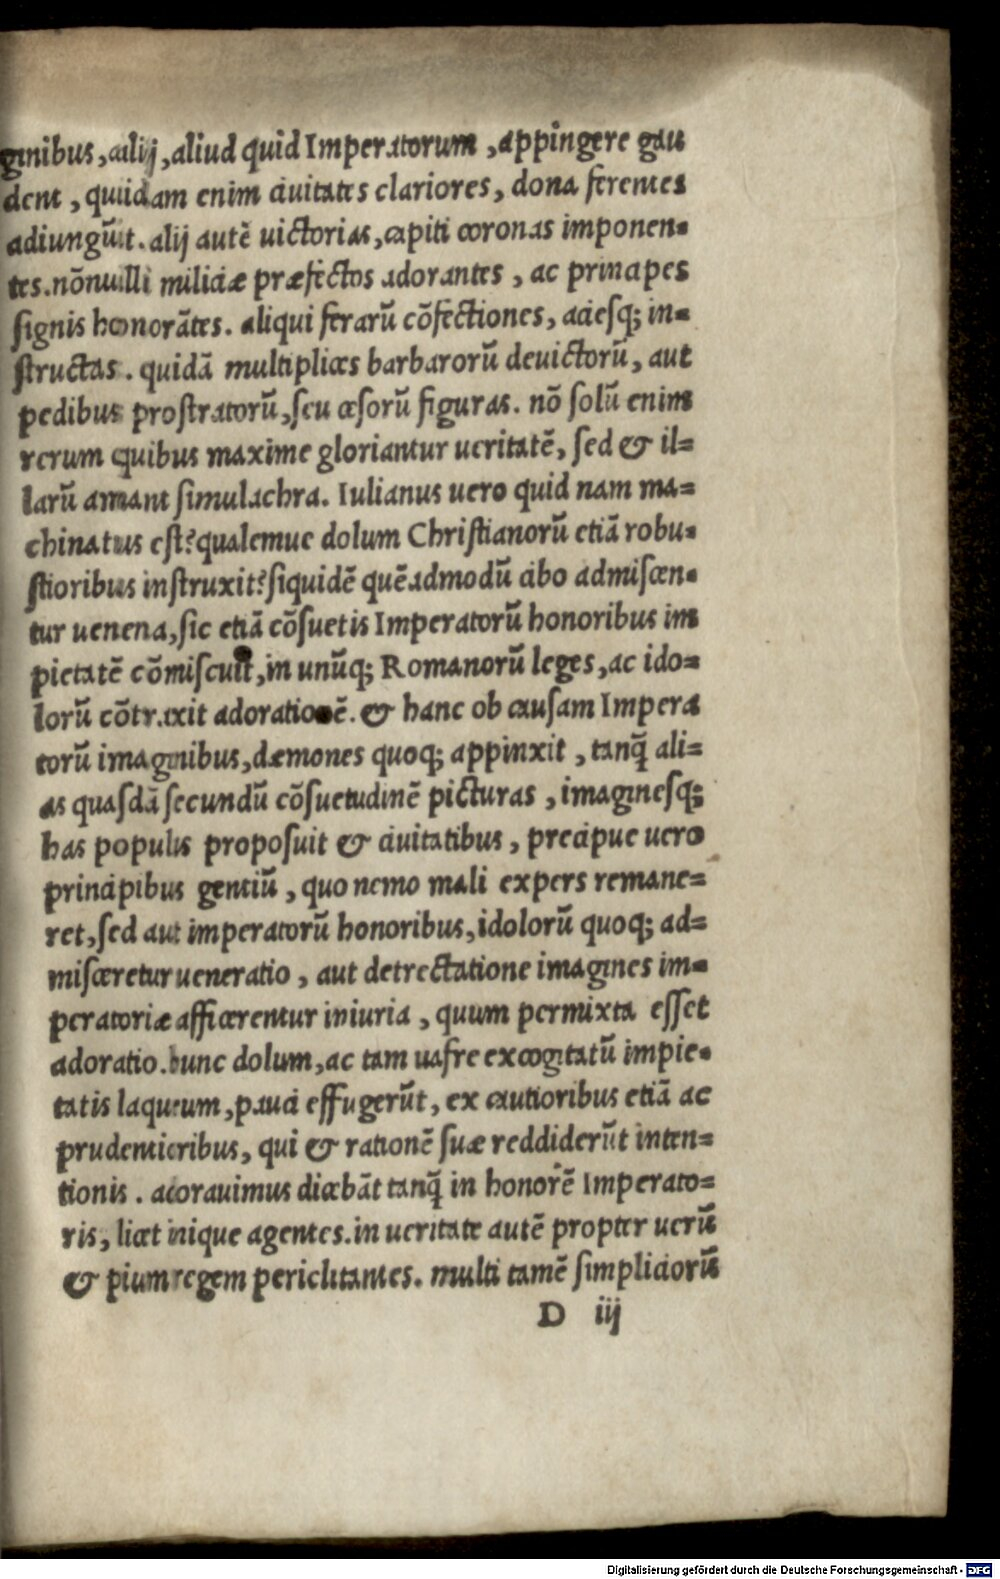 ginibus, alij, aliud quid Imperatorum, appingere gau
dent, quidam enim ciuitates clariores, dona ferentes
adiungūt. alij autē uictorias, capiti coronas imponen=
tes. nōnulli miliciæ præfectos adorantes, ac principes
signis honorātes. aliqui ferarū cōfectiones, aciesq; in=
structas. quidā multiplices barbarorū deuictorū, aut
pedibus prostratorū, seu cæsorū figuras. nō solū enim
rerum quibus maxime gloriantur ueritatē, sed & il=
larū amant simulachra. Iulianus uero quid nam ma=
chinatus est? qualemue dolum Christianorū etiā robu=
stioribus instruxit? siquidē quēadmodū cibo admiscen=
tur uenena, sic etiā cōsuetis Imperatorū honoribus im
pietatē cōmiscuit, in unūq; Romanorū leges, ac ido=
lorū cōtraxit adorationē. & hanc ob causam Impera
torū imaginibus, dæmones quoq; appinxit, tanq̄ ali=
as quasdā secundū cōsuetudinē picturas, imaginesq;
has populis proposuit & ciuitatibus, precipue uero
principibus gentiū, quo nemo mali expers remane=
ret, sed aut imperatorū honoribus, idolorū quoq; ad=
misceretur ueneratio, aut detrectatione imagines im=
peratoriæ afficerentur iniuria, quum permixta esset
adoratio. hunc dolum, ac tam uafre excogitatū impie=
tatis laqueum, pauci effugerūt, ex cautioribus etiā ac
prudentioribus, qui & rationē suæ reddiderūt inten=
tionis. adorauimus dicebāt tanq̄ in honorē Imperato=
ris, licet inique agentes. in ueritate autē propter uerū
& pium regem periclitantes. multi tamē simpliciorū
D iij
Digitalisierung gefördert durch die Deutsche Forschungsgemeinschaft - DFG